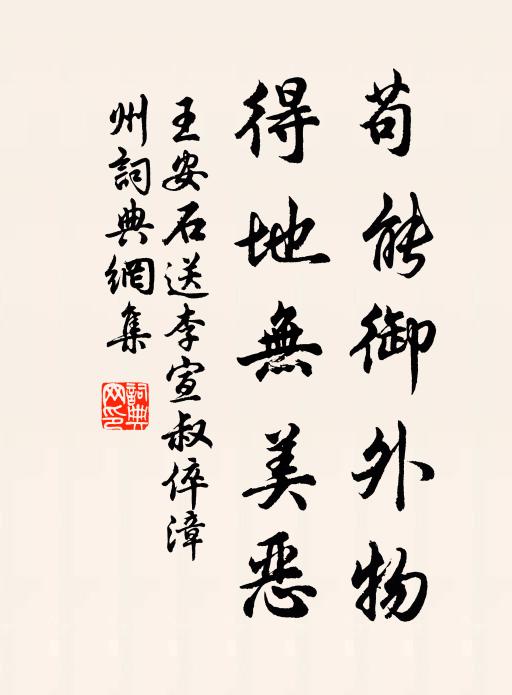 苟能御外物
得地無美惡
王安石送李宣叔倅漳
州詞典網集
詞典網印